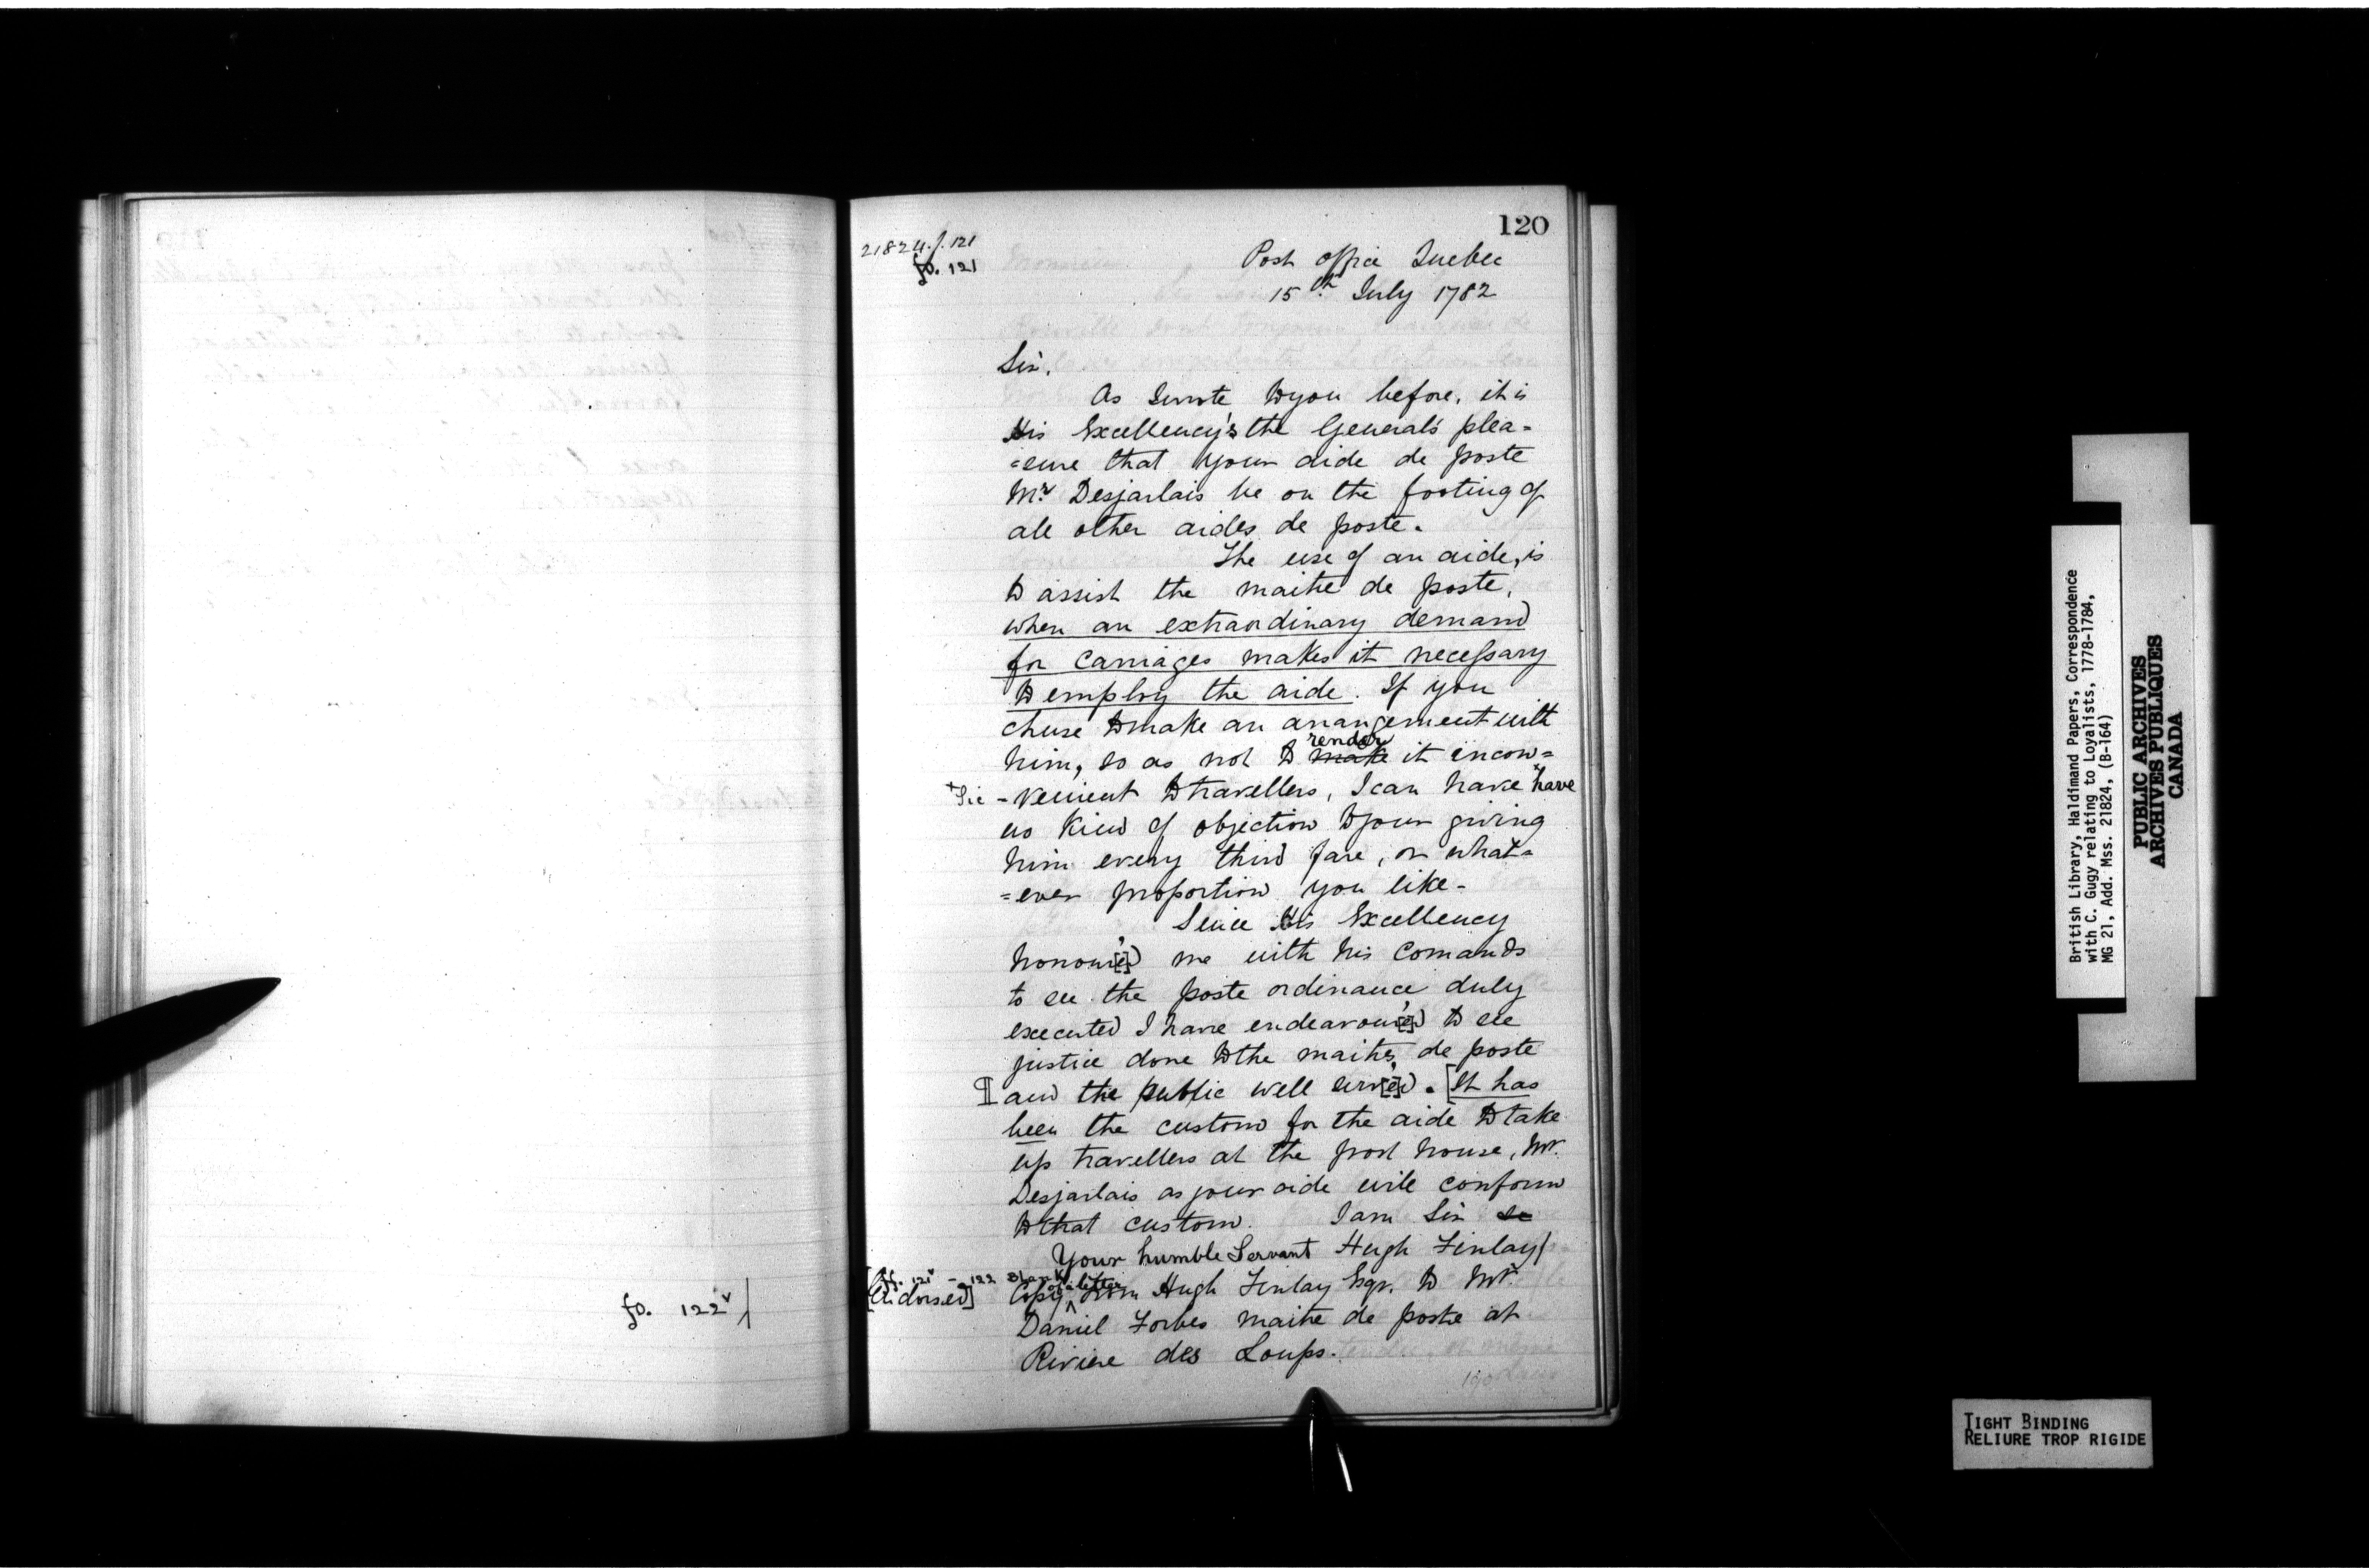 120
21824. f. 121
fo. 121
Post office Quebec
15th July 1782
Sir.
As I wrote to you before, it is
His Excellency's the General's plea=
=sure that your aide de poste
Mr. Desjarlais be on the footing of
all other aides de poste.
The use of an aide, is
to assist the maitre de poste,
when an extraordinary demand
for Carriages makes it necessary
to employ the aide. If you
chuse to make an arangement with
him, so as not to make render it incon=
*Sic =venient to travellers, I can have *have
no kind of objection to your giving
him every third fare, or what=
=ever proportion you like.
Since His Excellency
honour'[e]d me with his Comands
to see the poste ordinance duly
executed I have endeavour'[e]d to see
justice done to the maitres de poste
and the public well serv'[e]d. [It has
been the custom for the aide to take
up travellers at the post house, Mr.
Desjarlais as your aide will conform
to that custom. I am Sir &c
Your humble Servant Hugh Finlay/
ff. 121v - 122 Blank
[Endorsed] Copy of a letter from Hugh Finlay Esqr. to Mr.
Daniel Forbes maitre de poste at
Riviere des Loups.
fo. 122v
British Library, Haldimand Papers, Correspondence
with C. Gugy relating to Loyalists, 1778-1784,
MG 21, Add. Mss. 21824, (B-164)
PUBLIC ARCHIVES
ARCHIVES PUBLIQUES
CANADA
TIGHT BINDING
RELIURE TROP RIGIDE